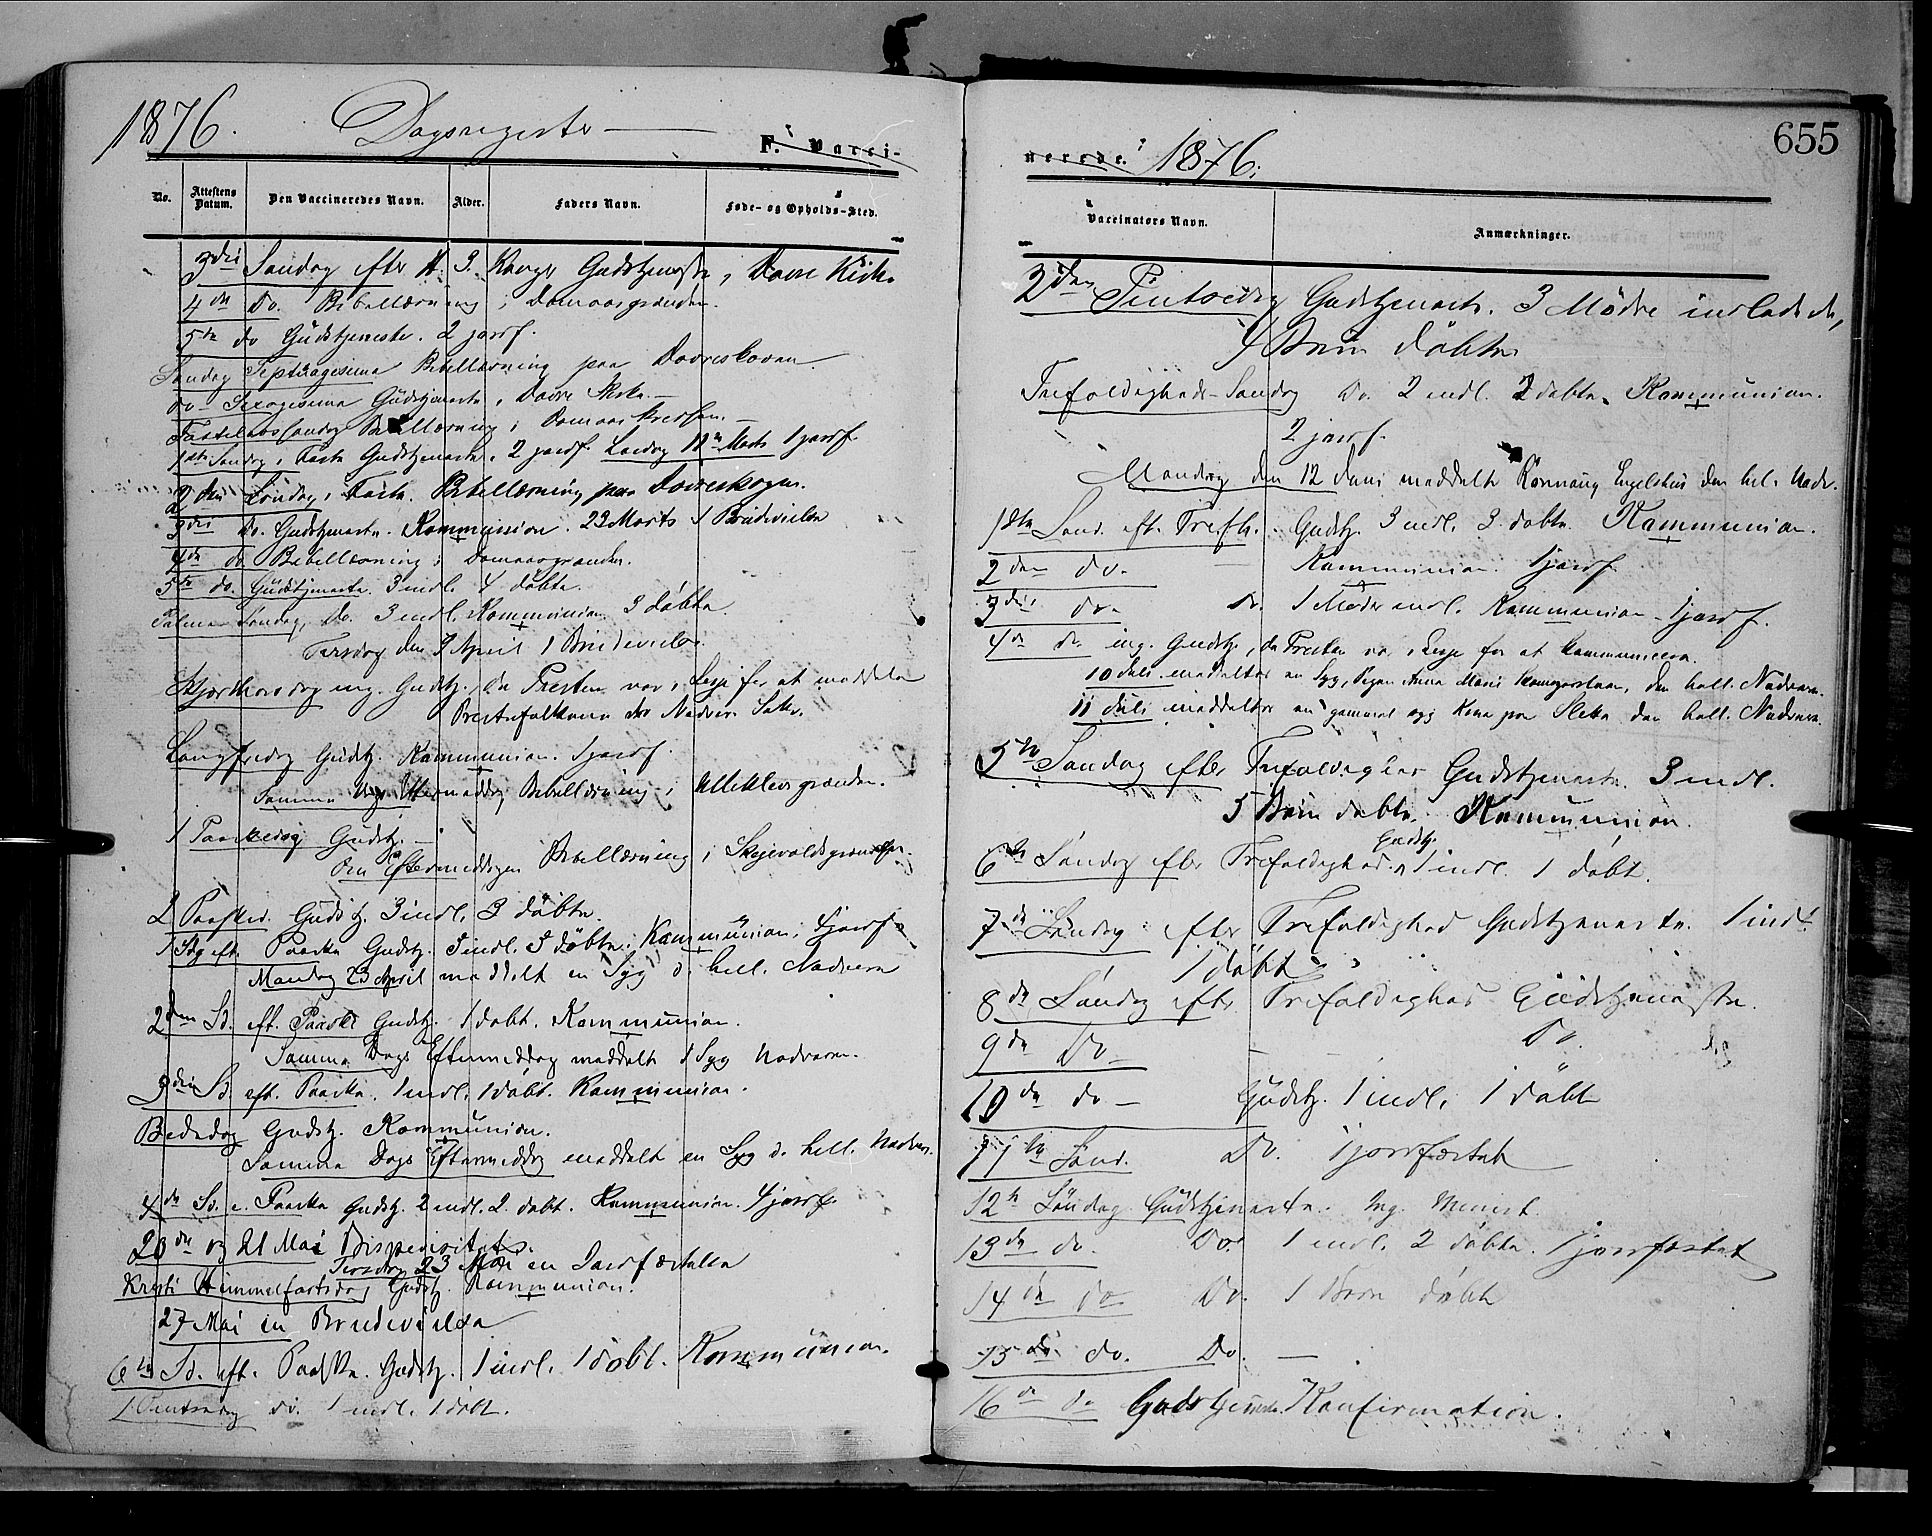 1876. Dagsregister
F. Vacci-
No. Attestens Datum. Den Vaccineredes Navn. Alder. Faders Navn. Føde- og Opholds-Sted.
3die Søndag efter H. 3. Konger Gudstjeneste i Dovre Kirke
4de Do. Bibellæsning i Domaasgrænden.
5te do Gudstjeneste. 2 jordf.
Søndag Septuagesima Bibellæsning paa Dovreskoven.
do - Sexagesima Gudstjeneste i Dovre Kirke.
Fastelavssøndag Bibellæsning i Domaaskredsen.
1ste Søndag i Faste Gudstjeneste. 2 jordf. Lørdag 11te Marts 1 jordf.
2den Søndag i Faste. Bibellæsning paa Dovreskogen.
3die Do. Gudstjeneste. Kommunion. 23 Marts 1 Brudevielse
4de do Bibellæsning i Domaasgrænden.
5te do. Gudstjeneste. 3 indl. 4 døbte.
Palme-Søndag, Do. 3 indl. Kommunion 3 døbte
Tirsdag den April 1 Brudevielse.
Skjærthorsdag ing. Gudstj., da Presten var i Lesje for at meddele
Prestefolkene der Nadver. Sakr.
Langfredag Gudstj. Kommunion. 1 jordf.
Samme Dags Eftermiddag Bibellæsning i grænden.
1 Paaskedag Gudstj. —
Om Eftermiddagen Bibellæsning i
2 Paasked. Gudstj. 3 indl. 3 døbte.
1 Sdg eft. Paaske Gudstj. 3 indl. 3 døbte. Kommunion. jordf.
Mandag April meddelt en Syg d. hell. Nadvere
2den Sd. eft. Paaske Gudstj. 1 døbt. Kommunion.
Samme Dags Eftermiddag meddelt 1 Syg Nadveren.
3die Sd. eft. Paaske. 1 indl. 1 døbt. Kommunion.
Bededag Gudstj. Kommunion.
Samme Dags Eftermiddag meddelt en Syg d. hell. Nadver.
4de Sd. e. Paaske Gudstj. 2 indl. 2 døbt. Kommunion. jordf.
20de og 21 Mai Bispevisitats.
Tirsdag 23 Mai en Jordfæstelse
Kristi Himmelfartsdag Gudstj. Kommunion.
27 Mai en Brudevielse
6te Sd. eft. Paaske. Gudstj. 1 indl. 1 døbt. Kommunion.
1 Pintsedag do. 1 indl. 1 døbt.
655
nerede. 1876.
Vaccinators Navn. Anmærkninger.
2den Pintsedag Gudstjeneste. 3 Mødre indledede,
4 Børn døbte
Trefoldigheds-Søndag Do. 2 indl. 2 døbte. Kommunion.
2 jordf.
Mandag den 12 Juni meddelt Rønnaug Engelshus den hel. Nadv.
1ste Sønd. eft. Trefh. Gudstj. 3 indl. 3 døbte. Kommunion.
2den do. — Kommunion. 1 jordf
3die do. do. 1 Moder indl. Kommunion. 1 jordf.
4de do ing. Gudstj., da Presten var i Lesje for at kommunicere.
10 Juli meddeltes en Syg, Pigen Anna Marie , den hell. Nadvere.
11 Juli meddeltes en gammel syg Kone paa Sletten den hell. Nadvere.
5te Søndag efter Trefoldighed Gudstjeneste. 3 indl.
5 Børn døbte. Kommunion.
6te Søndag efter Trefoldighed, Gudstj. 1 indl. 1 døbt.
7de Søndag efter Trefoldighed Gudstjeneste. 1 indl.
1 døbt
8de Søndag efter Trefoldighed Gudstjeneste.
9de Do — — Do.
10de do — Gudstj. 1 indl. 1 døbt
11te Sønd. Do. 1 jordfæstet
12te Søndag Gudstjeneste. Ing. Minist.
13de do. Do. 1 indl. 2 døbte. 1 jordfæstet
14de do. Do. 1 Barn døbt
15de do. Do. —
16de do Gudstjeneste. Konfirmation.